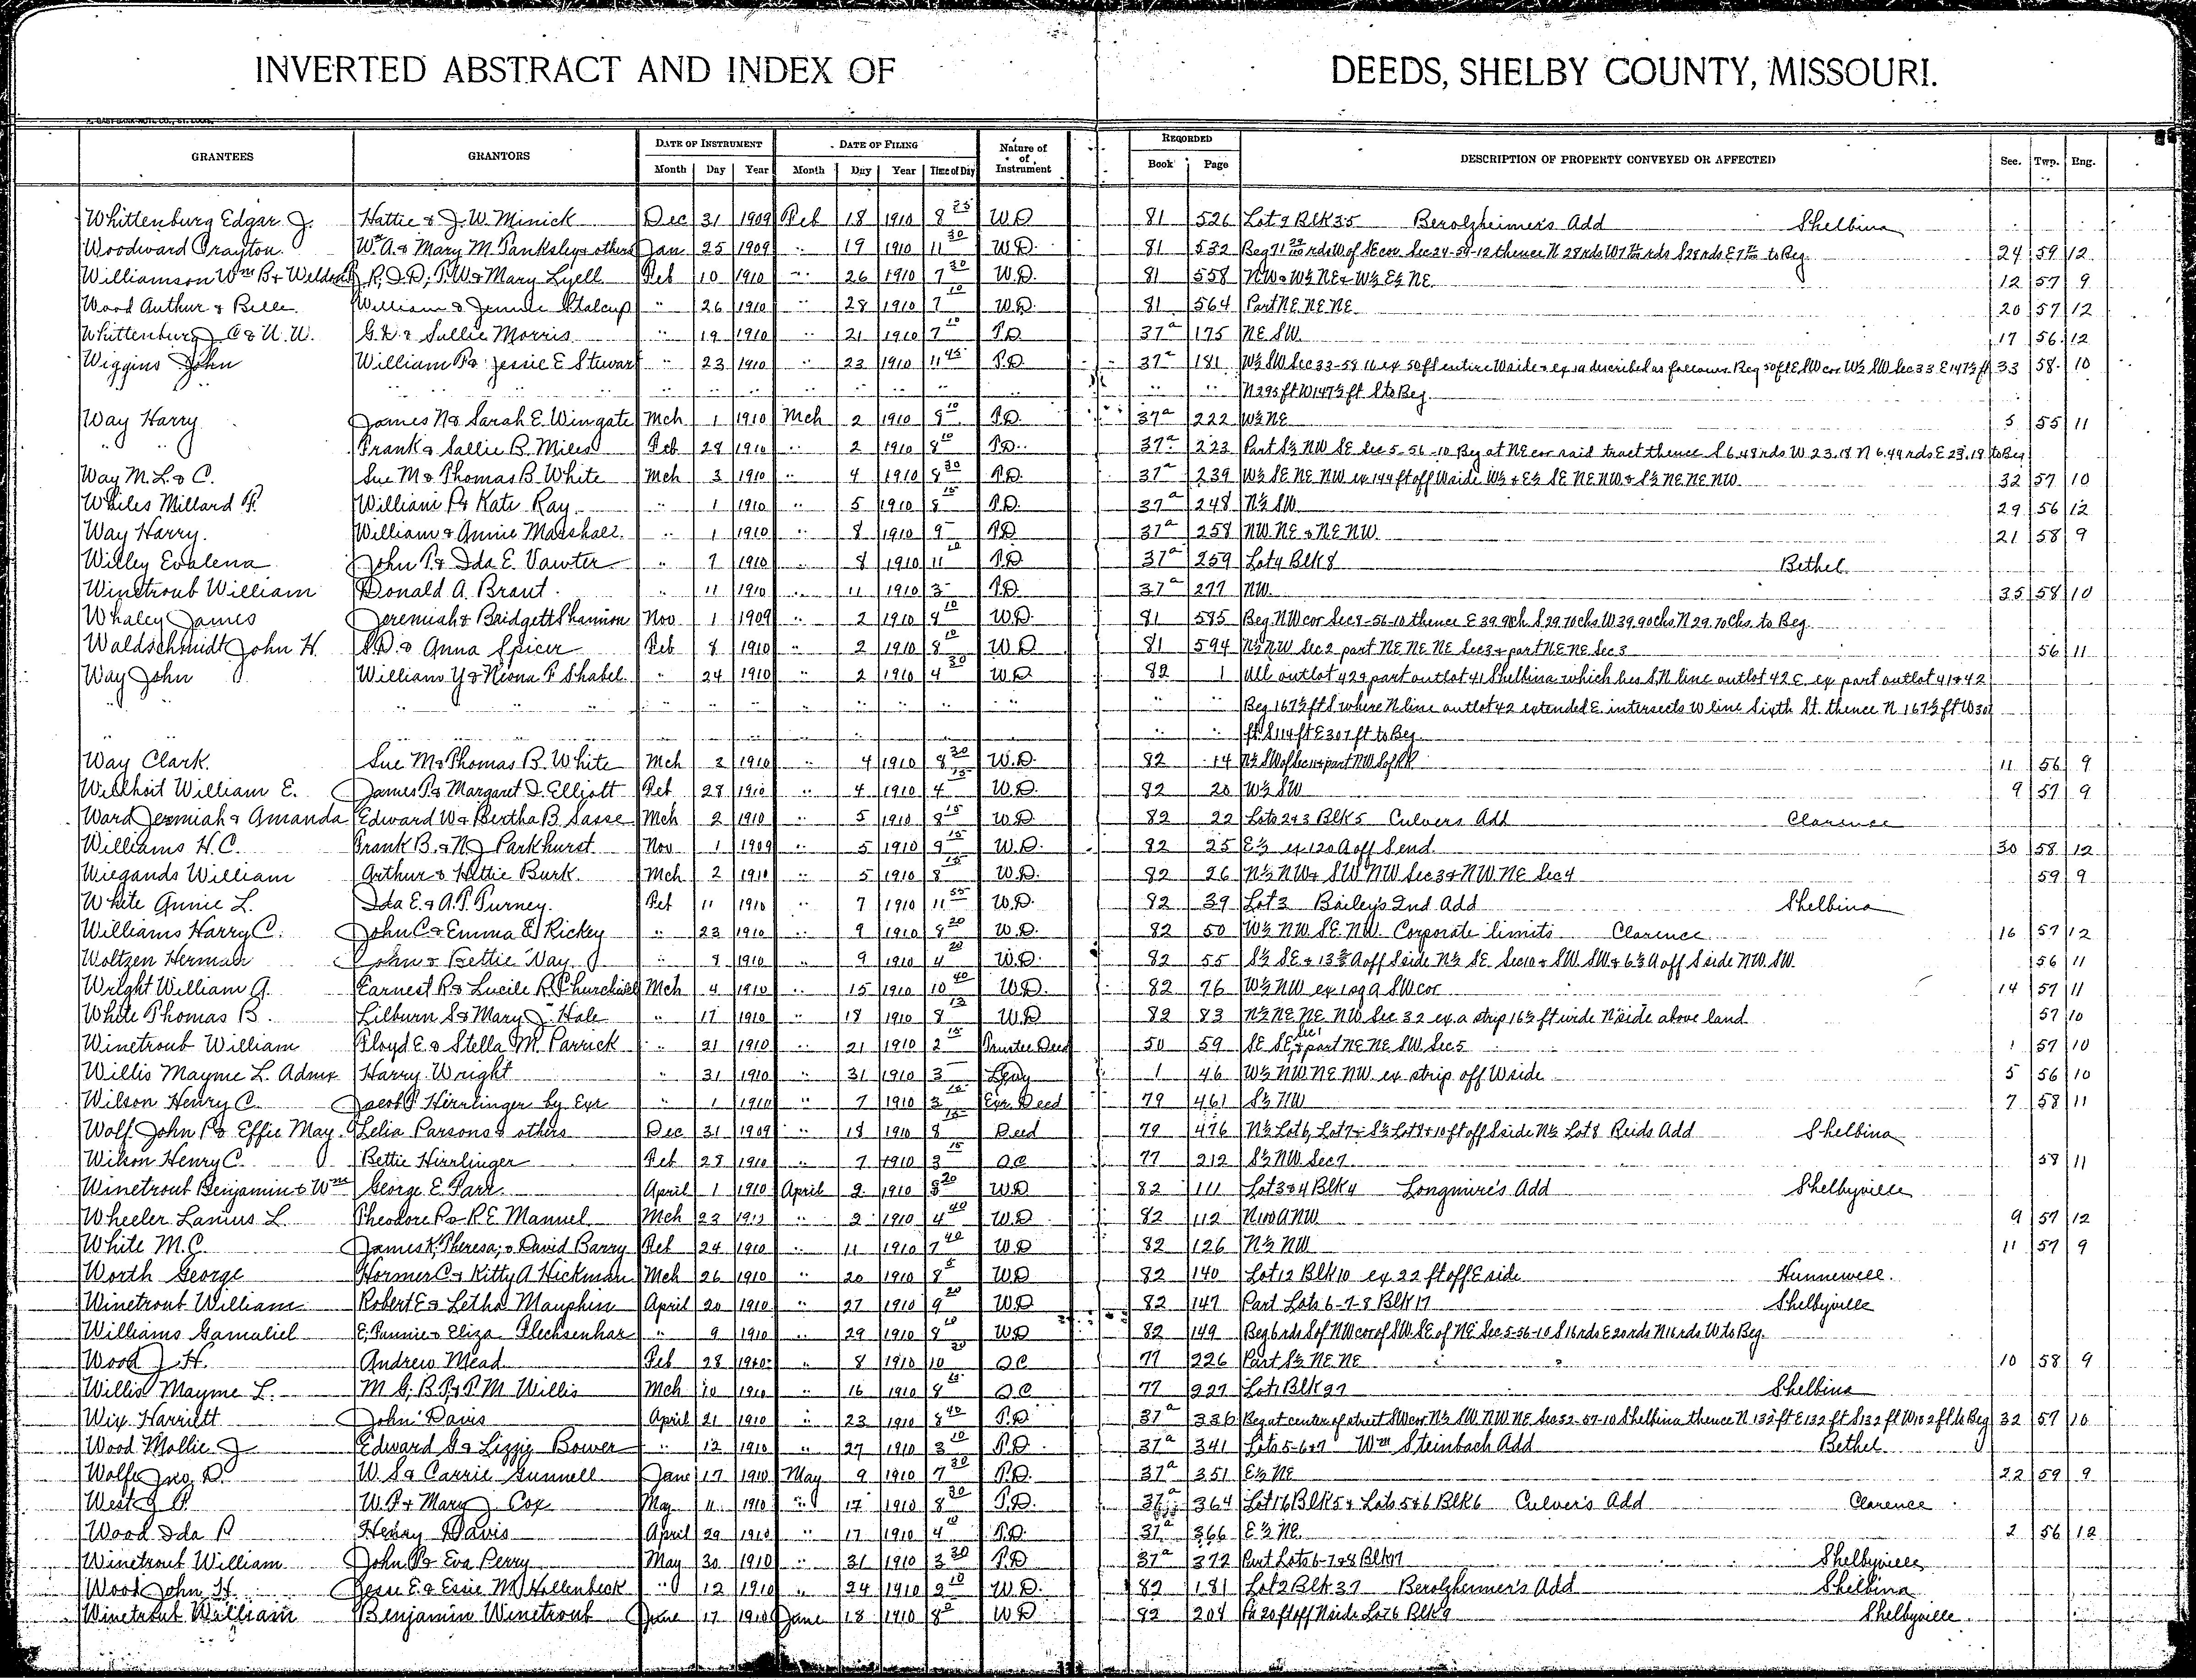 INVERTED ABSTRACT AND INDEX OF DEEDS, SHELBY COUNTY, MISSOURI.
GRANTEES GRANTORS DATE OF INSTRUMENT DATE OF FILING Nature of Instrument RECORDED DESCRIPTION OF PROPERTY CONVEYED OR AFFECTED Sec. Twp. Rng.
Month Day Year Month Day Year Time of Day Book Page
Whittenburg Edgar J. Hattie & J. W. Minick Dec 31 1909 Feb 18 1910 8 25 W D 81 526 Lot 9 Blk 35 Berolzheimer's Add Shelbina
Woodward Crayton Wm A. & Mary M. Tanksley & others Jan 25 1909 " 19 1910 11 30 W D. 81 532 24 59 12
Williamson Wm B & R. J. D; T. W & Mary Lyell Feb 10 1910 " 26 1910 7 30 W. D. 81 558 NW & W½ NE & W½ E½ NE 12 57 9
Wood Authur & Belle William & Jennie Stalcup " 26 1910 " 28 1910 7 10 W. D. 81 564 Part NE NE NE 20 57 12
Whittenburg J C & U. W. G. D. & Sallie Morris " 19 1910 " 21 1910 7 10 T D 37a 175 NE SW 17 56 12
Wiggins John William P & Jessie E Stewart " 23 1910 " 23 1910 11 45 T. D. 37a 181 W½ SW Sec 33-58-10 ex 50 ft entire W side & ex 1a described as follows Beg 50 ft E SW cor W½ SW Sec 33 E 147½ ft 33 58 10
" " " " " " " " " " N 295 ft W 147½ ft S to Beg
Way Harry James N & Sarah E. Wingate Mch 1 1910 Mch 2 1910 8 10 T. D. 37a 222 W½ NE 5 55 11
" " Frank & Sallie B. Miles Feb 28 1910 " 2 1910 8 10 T D. 37a 223 Part S½ NW SE Sec 5-56-10 Beg at NE cor said tract thence S 6.48 rds W 23.18 N 6.49 rds E 23.18 to Beg
Way M. L. & C. Sue M & Thomas B. White Mch 3 1910 " 4 1910 8 30 T. D. 37a 239 W½ SE NE NW ex 144 ft off W side W½ & E½ SE NE NW & S½ NE NE NW 32 57 10
Whiles Millard F. William P & Kate Ray " 1 1910 " 5 1910 8 15 T. D. 37a 248 N½ SW 29 56 12
Way Harry. William & Annie Marshall. " 1 1910 " 8 1910 9 T D 37a 258 NW NE & NE NW 21 58 9
Willey Evalena John T & Ida E. Vawter " 7 1910 " 8 1910 11 10 T. D 37a 259 Lot 4 Blk 8 Bethel
Winetroub William Donald A. Brant. " 11 1910 " 11 1910 3 T D 37a 277 NW 35 58 10
Whaley James Jeremiah & Bridgett Shannon Nov 1 1909 " 2 1910 9 10 W. D. 81 585 Beg NW cor Sec 8-56-10 thence E 39.90 ch S 29.70 chs W 39.90 chs N 29.70 Chs. to Beg.
Waldschmidt John H. S. D. & Anna Spicer Feb 8 1910 " 2 1910 8 10 W D 81 594 N½ NW Sec 2 part NE NE NE Sec 3 & part NE NE Sec 3 56 11
Way John William Y & Neona F Shabel " 24 1910 " 2 1910 4 30 W D 82 1 All outlot 42 & part outlot 41 Shelbina which lies S, N line outlot 42 E ex part outlot 41 & 42
" " " " " " " " " " Beg 167½ ft S where N line outlot 42 extended E intersects W line Sixth St. thence N 167½ ft W 307
" " " " " " " " " " ft S 114 ft E 307 ft to Beg
Way Clark. Sue M & Thomas B. White Mch 3 1910 " 4 1910 8 30 W. D. 82 14 N½ SW of Sec 11 & part NW S of RR 11 56 9
Willhoit William E. James P & Margaret D. Elliott Feb 28 1910 " 4 1910 4 15 W. D. 82 20 W½ SW 9 57 9
Ward Jermiah & Amanda Edward W & Bertha B. Sasse Mch 2 1910 " 5 1910 8 15 W D 82 22 Lots 2 & 3 Blk 5 Culvers Add Clarence
Williams H. C. Frank B. & N. J Parkhurst Nov 1 1909 " 5 1910 9 15 W. D. 82 25 E½ ex 120 A off S end 30 58 12
Wiegands William Arthur & Hettie Burk. Mch 2 1910 " 5 1910 8 15 W. D. 82 26 N½ NW & SW NW Sec 3 & NW NE Sec 4 59 9
White Annie L. Ida E. & A. P. Turney. Feb 11 1910 " 7 1910 11 55 W. D. 82 39 Lot 3 Bailey's 2nd Add Shelbina
Williams Harry C. John C & Emma D Rickey " 23 1910 " 9 1910 8 20 W. D. 82 50 W½ NW SE NW Corporate limits Clarence 16 57 12
Woltzen Herman John & Bettie Way " 8 1910 " 9 1910 4 20 W. D. 82 55 56 11
Wright William A. Earnest R & Lucile R. Churchwell Mch 4 1910 " 15 1910 10 40 W D. 82 76 W½ NW ex 1 sq a SW cor 14 57 11
White Thomas B. Lilburn S & Mary J. Hale " 17 1910 " 18 1910 8 13 W. D 82 83 N½ NE NE NW Sec 32 ex a strip 16½ ft wide N side above land 57 10
Winetroub William Floyd E. & Stella M. Parrick " 21 1910 " 21 1910 2 15 Trustee Deed 50 59 SE SE Sec 1 & part NE NE SW Sec 5 1 57 10
Willis Mayme L. Admx Harry Wright " 31 1910 " 31 1910 3 Levy 1 46 W½ NW NE NW ex strip off W side 5 56 10
Wilson Henry C. Jacob P Hirrlinger by Exr " 1 1910 " 7 1910 3 15 Exr Deed 79 461 S½ NW 7 58 11
Wolf John P & Effie May. Lelia Parsons & others Dec 31 1909 " 18 1910 8 15 Deed 79 476 N½ Lot 6, Lot 7 & S½ Lot 9 & 10 ft off S side N½ Lot 8 Reids Add Shelbina
Wilson Henry C. Bettie Hirrlinger Feb 28 1910 " 7 1910 3 15 Q C 77 212 S½ NW Sec 7 58 11
Winetroub Benjamin & Wm George E. Parr April 1 1910 April 2 1910 8 20 W D 82 111 Lot 3 & 4 Blk 4 Longmire's Add Shelbyville
Wheeler Lanius L Theodore P & R E Manuel Mch 23 1910 " 2 1910 4 40 W. D 82 112 N 100 A NW 9 57 12
White M. C. James K, Theresa; & David Barry Feb 24 1910 " 11 1910 7 40 W D 82 126 N½ NW 11 57 9
Worth George Hormer C & Kitty A Hickman Mch 26 1910 " 20 1910 8 5 W D 82 140 Lot 12 Blk 10 ex 22 ft off E side Hunnewell.
Winetroub William Robert E & Letha Maupin April 20 1910 " 27 1910 9 20 W D 82 147 Part Lots 6-7-8 Blk 17 Shelbyville
Williams Gamaliel E, Fannie & Eliza Flechsenhar " 9 1910 " 29 1910 8 10 W D 82 149 Beg 6 rds S of NW cor of SW SE of NE Sec 5-56-10 S 16 rds E 20 rds N 16 rds W to Beg.
Wood J. H. Andrew Mead Feb 28 1910 " 8 1910 10 20 Q C 77 226 Part S½ NE NE 10 58 9
Willis Mayme L. M. G; B. P. & P. M Willis Mch 10 1910 " 16 1910 8 Q C 77 227 Lot 1 Blk 27 Shelbina
Wix Harriett John Davis April 21 1910 " 23 1910 8 40 T. D 37a 336 Beg at center of street SW cor N½ SW NW NE Sec 32-57-10 Shelbina thence N 132 ft E 132 ft S 132 ft W 132 ft to Beg 32 57 10
Wood Mollie J Edward G & Lizzie Bower " 12 1910 " 27 1910 3 10 T. D. 37a 341 Lots 5-6 & 7 Wm Steinbach Add Bethel
Wolfe Jno. D. W. S & Carrie Gunnell Jane 17 1910 May 9 1910 7 30 T. D. 37a 351 E½ NE 22 59 9
West J P W. P & Mary J. Cox May 11 1910 " 17 1910 8 30 T. D. 37a 364 Lot 16 Blk 5 & Lots 5 & 6 Blk 6 Culver's Add Clarence
Wood Ida P Henry Davis April 29 1910 " 17 1910 4 10 T. D. 37a 366 E½ NE 2 56 12
Winetroub William John P & Eva Perry May 30 1910 " 31 1910 3 30 T. D 37a 372 Part Lots 6-7 & 8 Blk 17 Shelbyville
Wood John H. Jesse E & Essie M Hollenbeck " 12 1910 " 24 1910 2 10 W. D. 82 181 Lot 2 Blk 37 Berolzheimer's Add Shelbina
Winetroub William Benjamin Winetroub June 17 1910 June 18 1910 8 W D 82 204 Pt 20 ft off N side Lot 6 Blk 9 Shelbyville